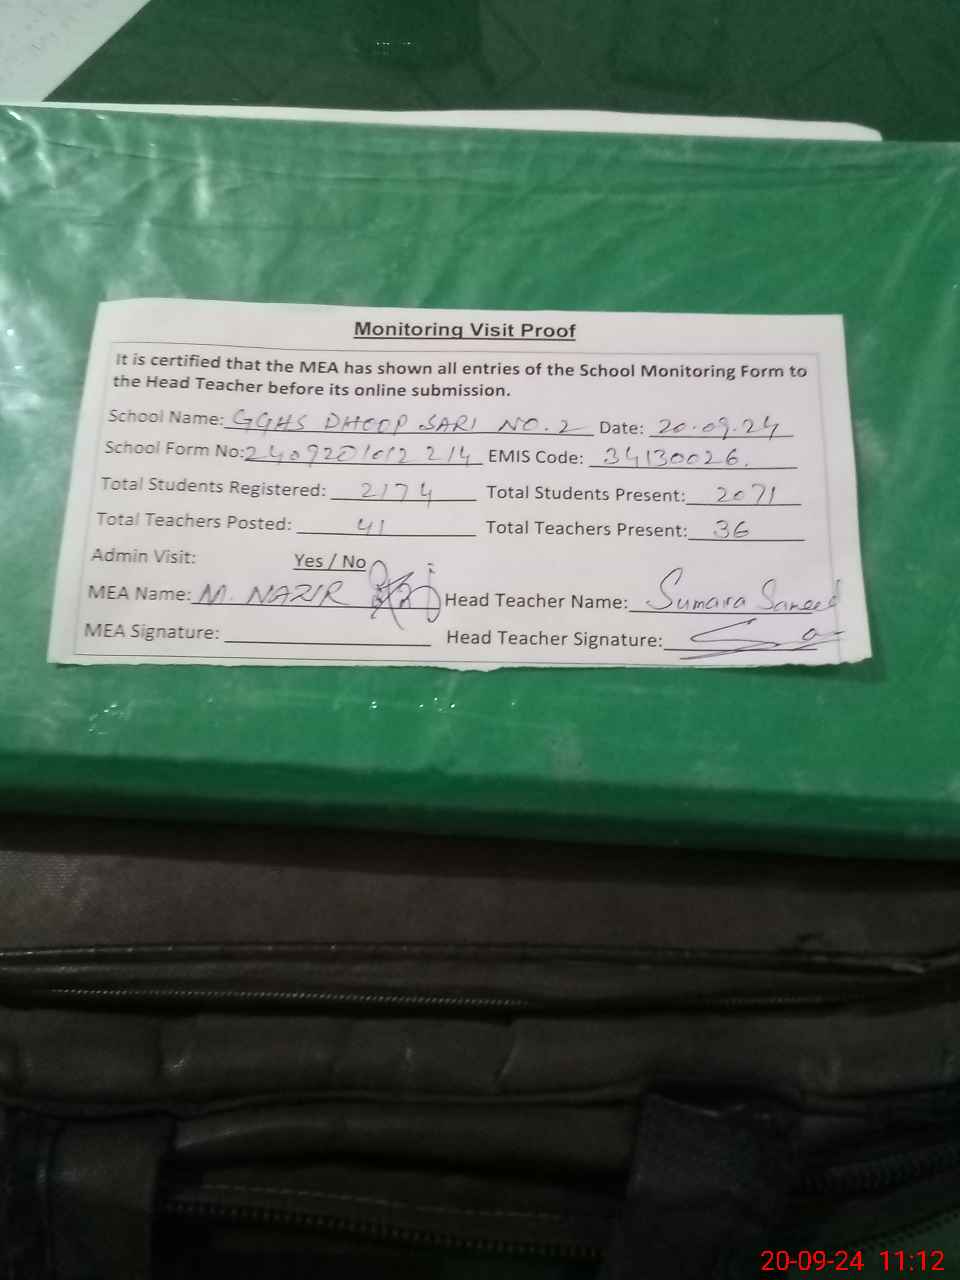 Monitoring Visit Proof
It is certified that the MEA has shown all entries of the School Monitoring Form to
the Head Teacher before its online submission.
School Name: GGHS DHOOP SARI NO. 2 Date: 20.09.24
School Form No: 2409201012214 EMIS Code: 34130026.
Total Students Registered: 2174 Total Students Present: 2071
Total Teachers Posted: 41 Total Teachers Present: 36
Admin Visit: Yes / No
MEA Name: M. NAZIR Head Teacher Name: Sumaira Saneed
MEA Signature: Head Teacher Signature:
20-09-24 11:12